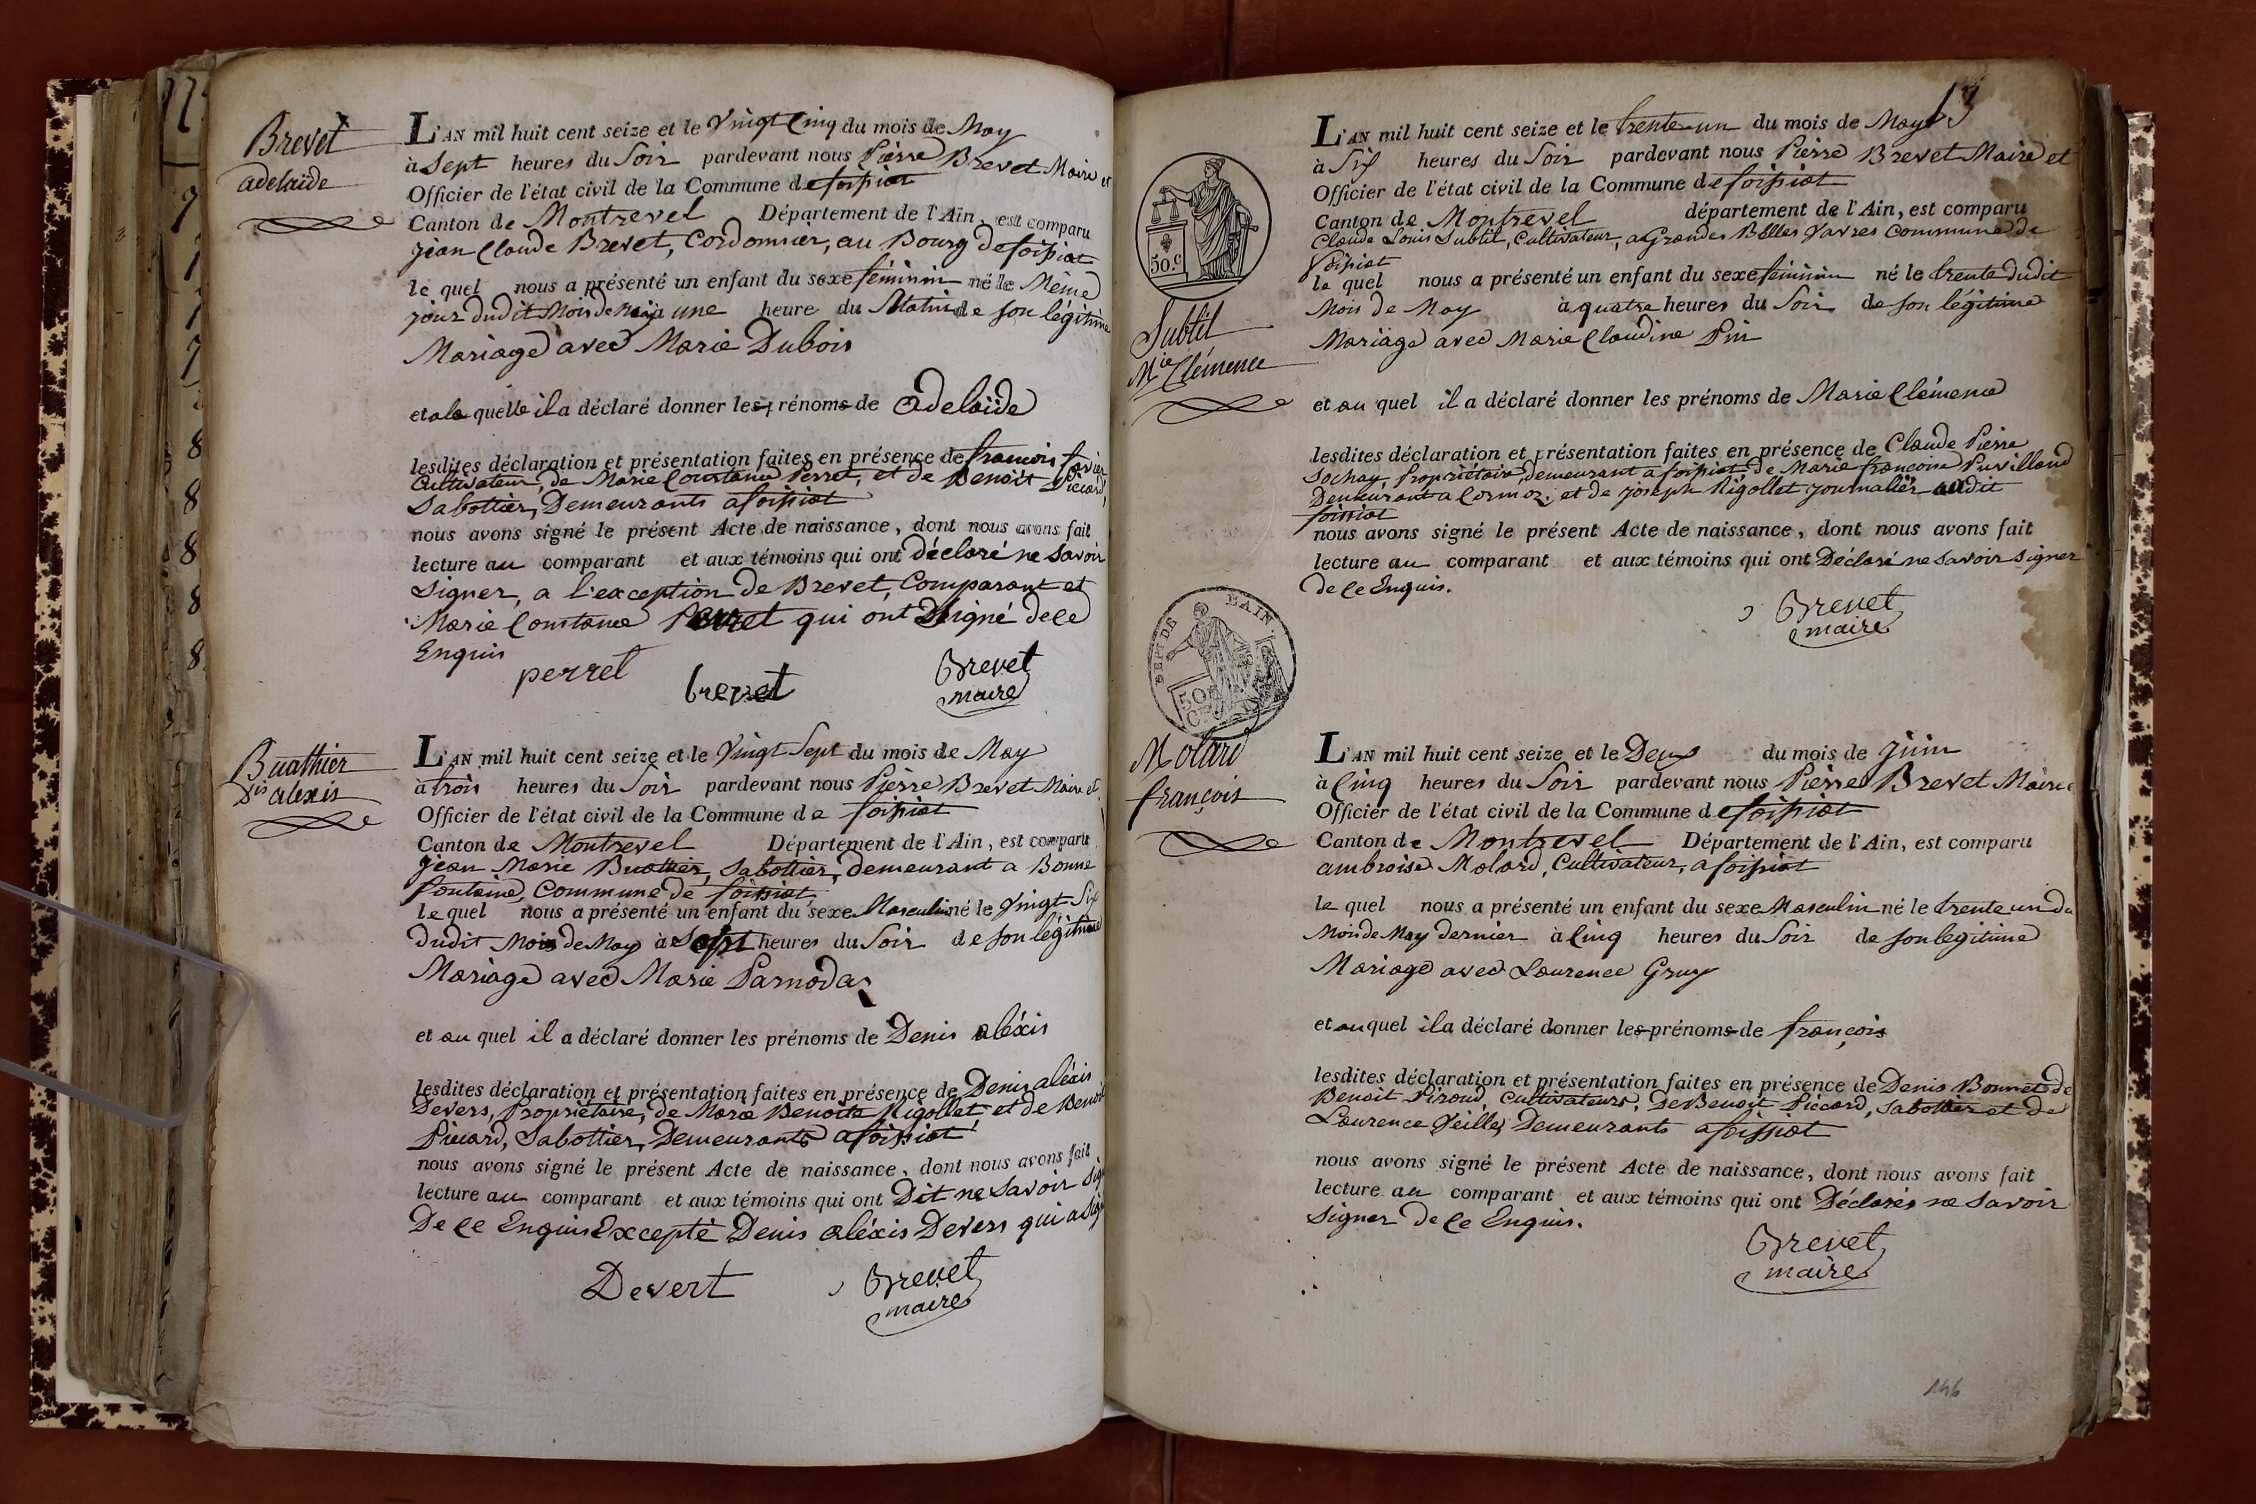 Brevet
adelaïde
L'AN mil huit cent seize et le Vingt Cinq du mois de May
à Sept heures du Soir pardevant nous Pierre Brevet Maire et
Officier de l'état civil de la Commune de foissiat
Canton de Montrevel Département de l'Ain, est comparu
jean Claude Brevet, Cordonnier, au Bourg de foissiat
le quel nous a présenté un enfant du sexe féminin né le Même
jour dudit Mois de May à une heure du Matin de son légitime
Mariage avec Marie Dubois
et a la quelle il a déclaré donner les prénoms de adelaïde
lesdites déclaration et présentation faites en présence de francois favier
Cultivateur, de Marie Constance Perret, et de Benoit Piccard,
Sabottier, Demeurants a foissiat
nous avons signé le présent Acte de naissance, dont nous avons fait
lecture au comparant et aux témoins qui ont déclaré ne savoir
Signer, a l'exception de Brevet, Comparant et
Marie Constance Perret qui ont Signé de ce
Enquis
perret
brevet
Brevet
maire
Buathier
Dis alexis
L'AN mil huit cent seize et le Vingt Sept du mois de May
à trois heures du Soir pardevant nous Pierre Brevet Maire et
Officier de l'état civil de la Commune de foissiat
Canton de Montrevel Département de l'Ain, est comparu
jean Marie Buathier, Sabottier, demeurant a Bonne
fontaine, Commune de foissiat,
le quel nous a présenté un enfant du sexe Masculin né le Vingt Six
dudit Mois de May à Sept heures du Soir de son légitime
Mariage avec Marie Parnodas
et au quel il a déclaré donner les prénoms de Denis aléxis
lesdites déclaration et présentation faites en présence de Denis aléxis
Devers, Propriétaire, de Marie Benoite Rigollet et de Benoit
Piccard, Sabottier, Demeurants a foissiat
nous avons signé le présent Acte de naissance, dont nous avons fait
lecture au comparant et aux témoins qui ont Dit ne Savoir Sig
De ce Enquis Excepté Denis aléxis Devers qui a Sig
Devert
Brevet
maire
13
50.c
Subtil
Mie Clémence
L'AN mil huit cent seize et le trente un du mois de May
à Six heures du Soir pardevant nous Pierre Brevet Maire et
Officier de l'état civil de la Commune de foissiat
Canton de Montrevel département de l'Ain, est comparu
Claude Louis Subtil, Cultivateur, a Grandes Belles Vavres Commune de
foissiat
le quel nous a présenté un enfant du sexe féminin né le trente dudit
Mois de May à quatre heures du Soir de son légitime
Mariage avec Marie Claudine Pin
et au quel il a déclaré donner les prénoms de Marie Clémence
lesdites déclaration et présentation faites en présence de Claude Pierre
Sochay, Propriétaire, demeurant a foissiat de Marie francoise Puvilland
Demeurant a Cormoz, et de joseph Rigollet journalier audit
foissiat
nous avons signé le présent Acte de naissance, dont nous avons fait
lecture au comparant et aux témoins qui ont Déclaré ne savoir Signer
de ce Enquis.
Brevet
maire
Molard
françois
L'AN mil huit cent seize et le Deux du mois de juin
à Cinq heures du Soir pardevant nous Pierre Brevet Maire
Officier de l'état civil de la Commune de foissiat
Canton de Montrevel Département de l'Ain, est comparu
ambroise Molard, Cultivateur, a foissiat
le quel nous a présenté un enfant du sexe Masculin né le trente un du
Mois de May dernier à Cinq heures du Soir de son legitime
Mariage avec Laurence Gruy
et au quel il a déclaré donner les prénoms de françois
lesdites déclaration et présentation faites en présence de Denis Bonnet de
Benoit Piroud, Cultivateurs, De Benoit Piccard, Sabottier et de
Laurence Veille, Demeurants a foissiat
nous avons signé le présent Acte de naissance, dont nous avons fait
lecture au comparant et aux témoins qui ont Déclarés ne Savoir
Signer de Ce Enquis.
Brevet
maire
146